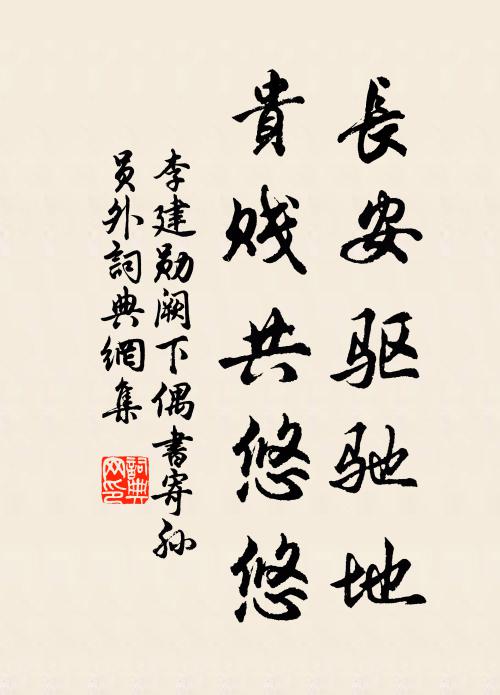 長安驱驰地
貴贱共悠悠
李建勋阙下偶書寄孙
員外詞典網集
詞典网印